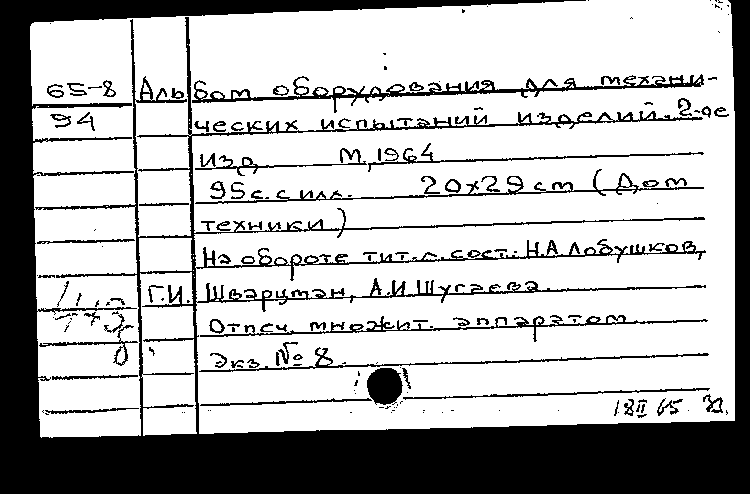 65-8 Альбом оборудования для механи-
94 ческих испытаний изделий. 2-ое
изд М, 1964
95 с. с илл. 20x29 cm (Дом
техники)
На обороте тит. л. сост.: Н.А Лобушков,
Г.И. Шварцман, А.И. Шугаева.
Отпеч. множит. аппаратом
Экз. № 8.
18 II 65